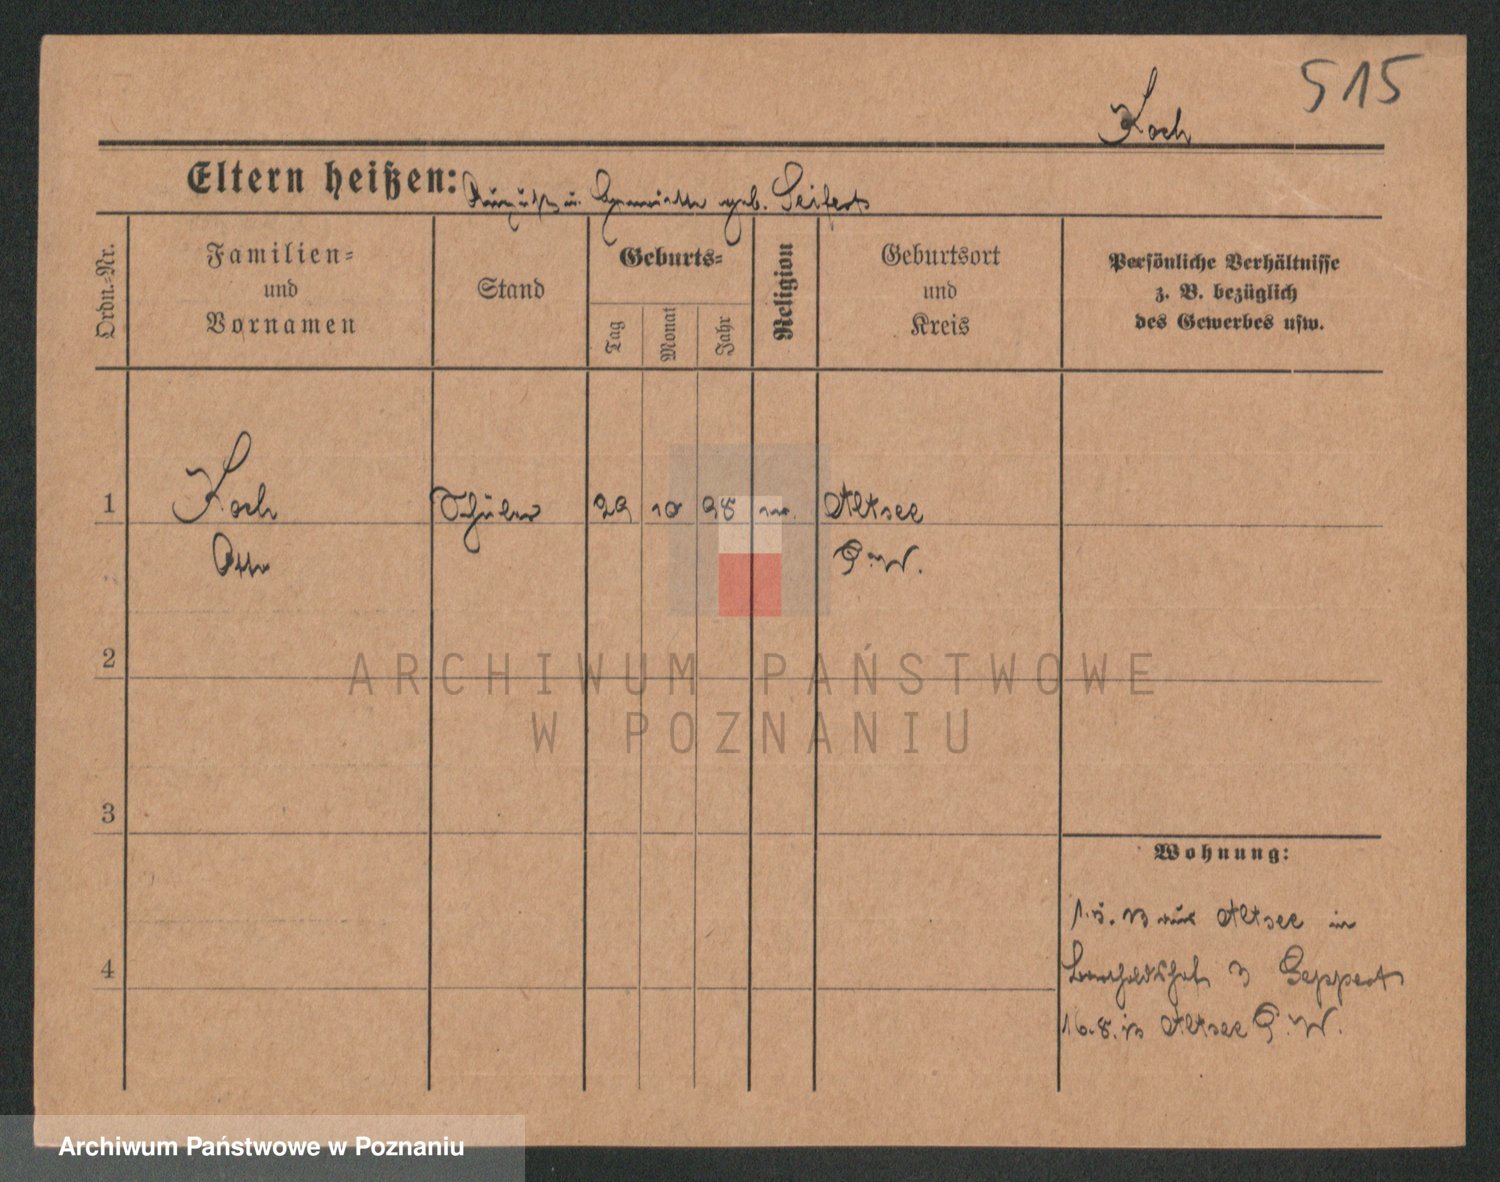 515
Koch
Eltern heißen: August u. Henriette geb. Seifert
Ordn.-Nr.
Familien-
und
Vornamen
Stand
Geburts-
Tag
Monat
Jahr
Religion
Geburtsort
und
Kreis
Persönliche Verhältnisse
z. B. bezüglich
des Gewerbes usw.
1 Koch Schüler 29 10 98 Altsee
Otto G.W.
2
3
4
Wohnung:
Altsee in
3 Geppert
16.8. Altsee G.W.
ARCHIWUM PAŃSTWOWE
W POZNANIU
Archiwum Państwowe w Poznaniu